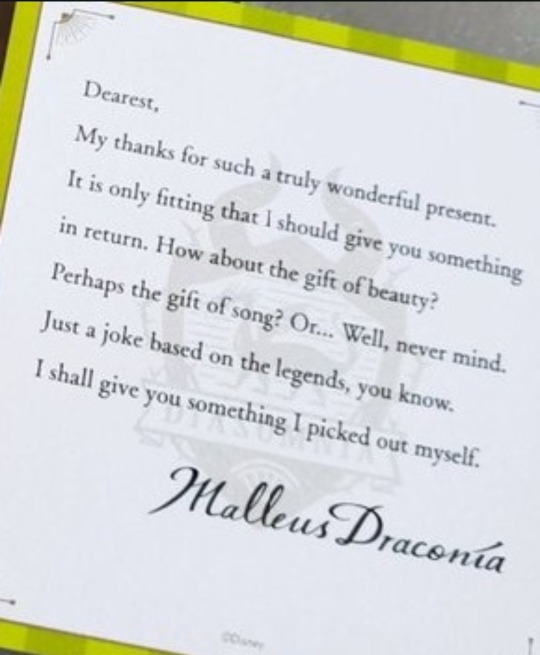 Dearest,
My thanks for such a truly wonderful present.
It is only fitting that I should give you something
in return. How about the gift of beauty?
Perhaps the gift of song? Or... Well, never mind.
Just a joke based on the legends, you know.
I shall give you something I picked out myself.
DIASOMNIA
Malleus Draconia
©Disney